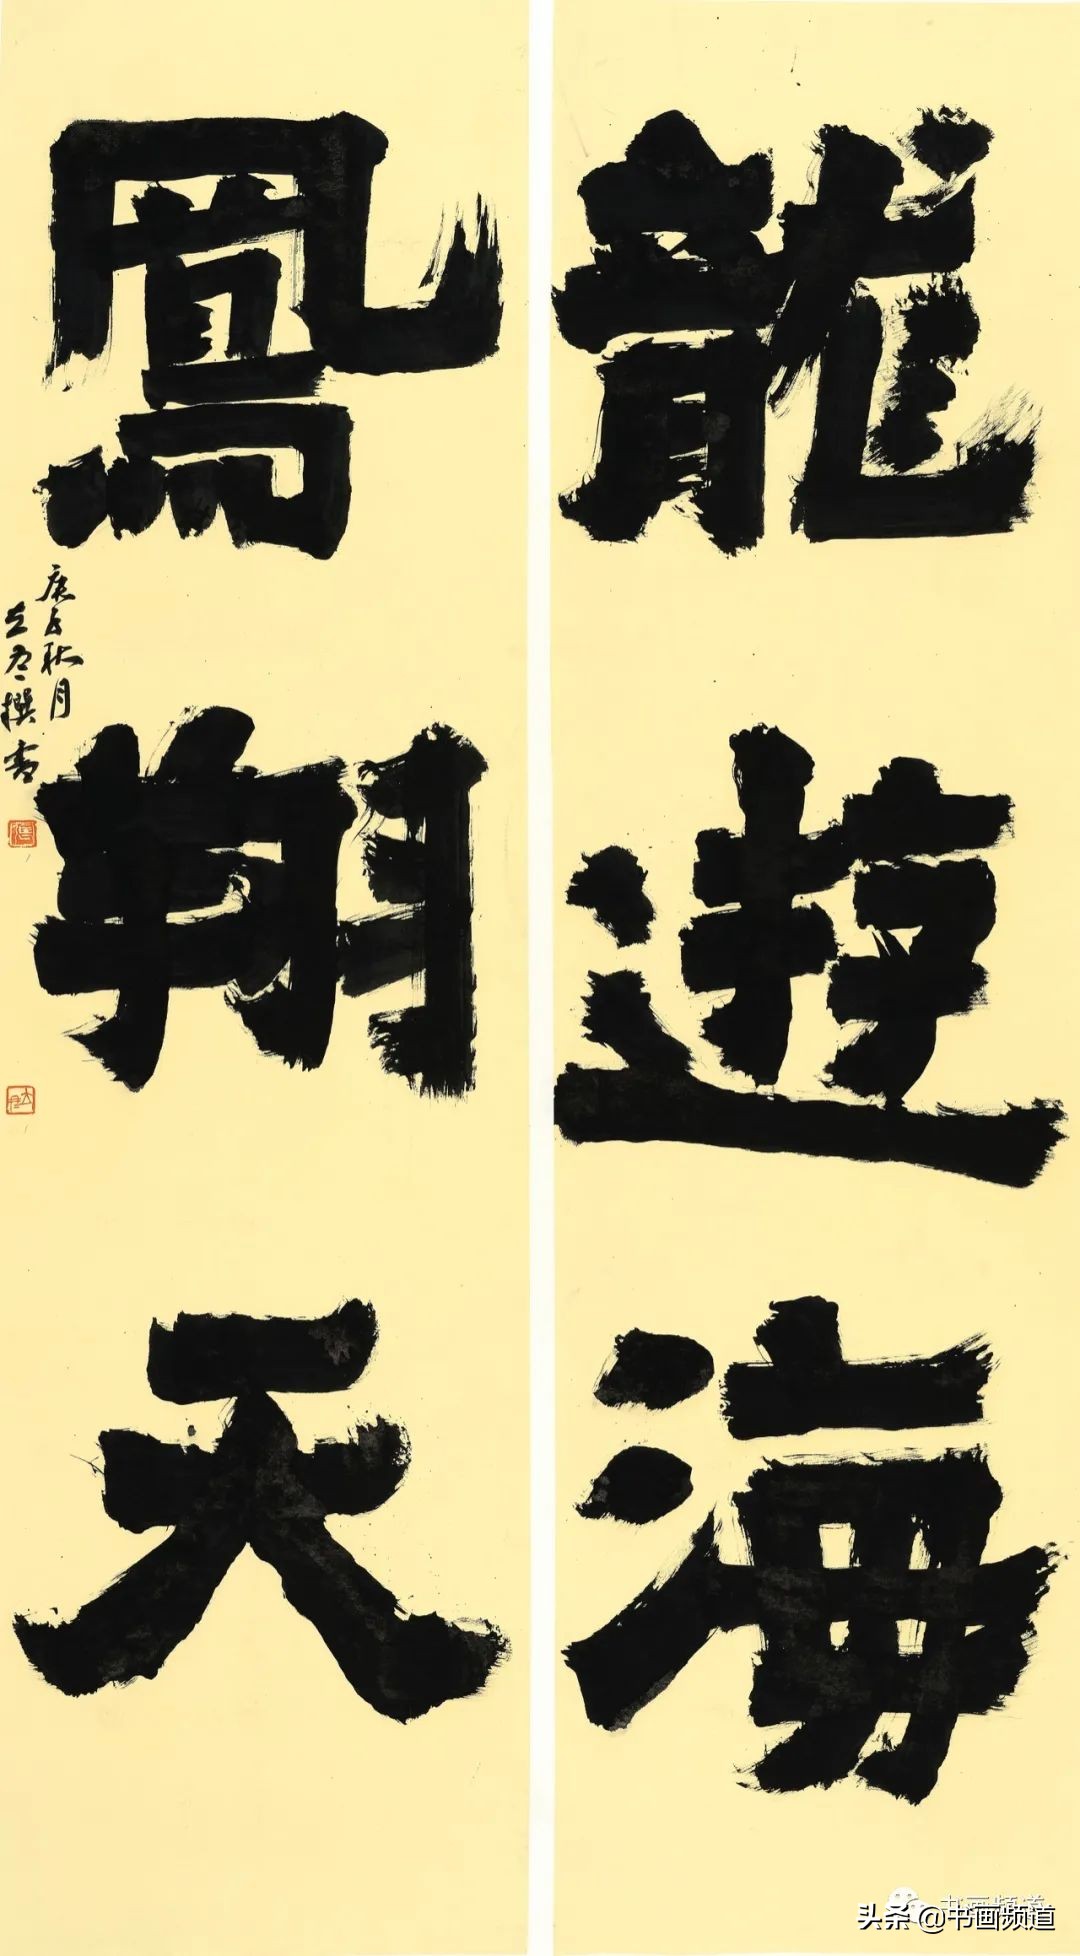 龍遊海
鳳翔天
庚子秋月
撰書
书画频道
头条 @书画频道